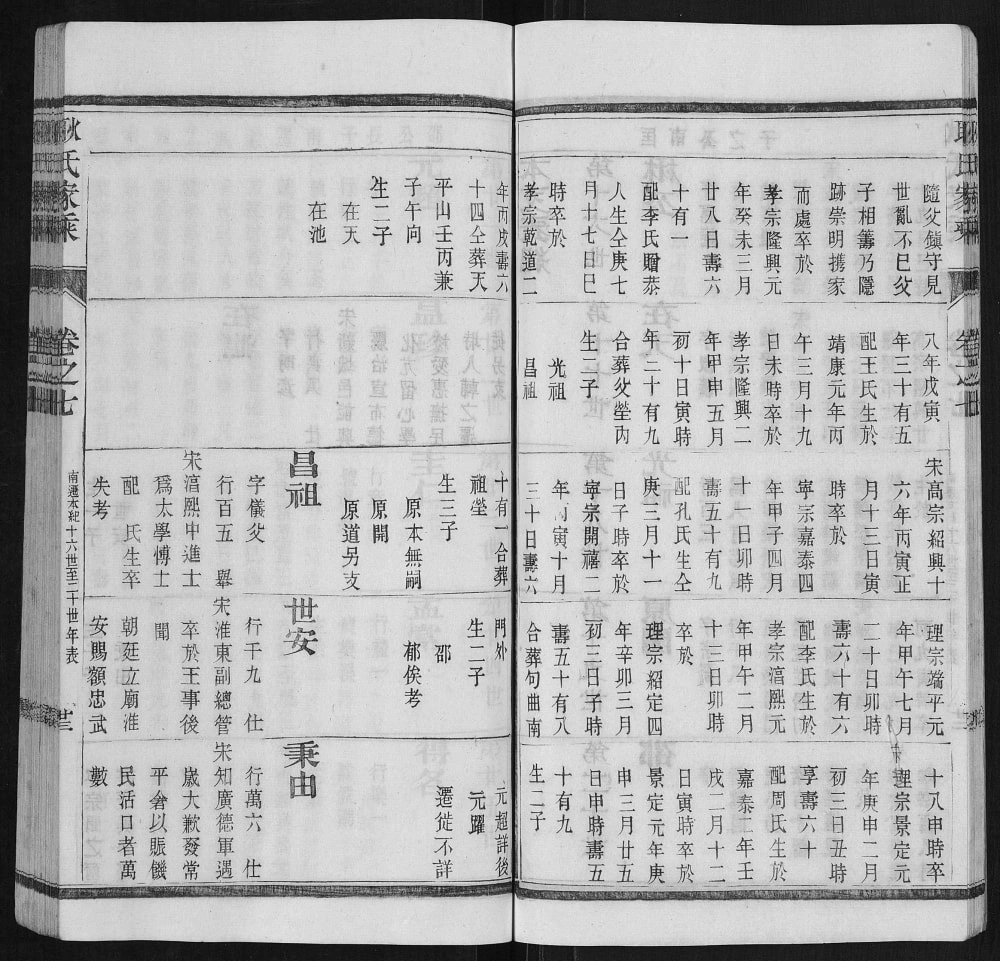 耿氏家乘
卷之七
隨父鎮守見
世亂不已父
子相籌乃隱
跡崇明携家
而處卒於
孝宗隆興元
年癸未三月
廿八日壽六
十有一
配李氏贈恭
人生仝庚七
月十七日巳
時卒於
孝宗乾道二
八年戊寅
年三十有五
配王氏生於
靖康元年丙
午三月十九
日未時卒於
孝宗隆興二
年甲申五月
初十日寅時
年二十有九
合葬父塋丙
生二子
光祖
昌祖
宋高宗紹興十
六年丙寅正
月十三日寅
時卒於
寧宗嘉泰四
年甲子四月
十一日卯時
壽五十有九
配孔氏生仝
庚三月十一
日子時卒於
寧宗開禧二
年丙寅十月
三十日壽六
理宗端平元
年甲午七月
二十日卯時
壽六十有六
配李氏生於
孝宗淳熙元
年甲午二月
十三日卯時
卒於
理宗紹定四
年辛卯三月
初三日子時
壽五十有八
合葬句曲南
十八申時卒
理宗景定元
年庚申二月
初三日丑時
享壽六十
配周氏生於
嘉泰二年壬
戌二月十二
日寅時卒於
景定元年庚
申三月廿五
日申時壽五
十有九
生二子
年丙戌壽六
十四仝葬天
平山壬丙兼
子午向
生二子
在天
在池
十有一合葬
祖塋
生三子
原本無嗣
原開
原道另支
昌祖
字儀父
行百五 舉
宋淳熙中進士
爲太學博士
配 氏生卒
失考
門外
生二子
邵
郁俟考
世安
行千九 仕
宋淮東副總管
卒於王事後
聞
朝廷立廟淮
安賜額忠武
元超詳後
元躍
遷徙不詳
秉由
行萬六 仕
宋知廣德軍遇
歲大歉發常
平倉以賑饑
民活口者萬
數
耿氏家乘
卷之七
南遷本紀十六世至二十世年表
廿三